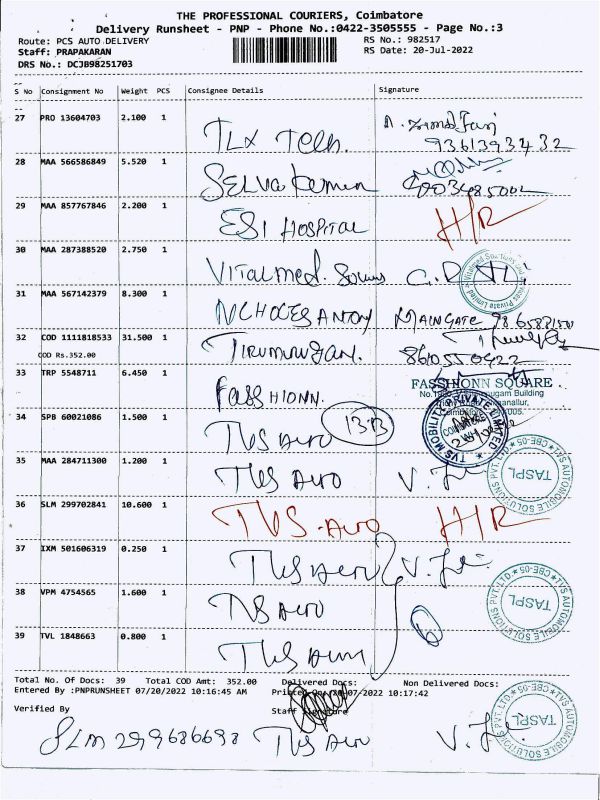 THE PROFESSIONAL COURIERS, Coimbatore
Delivery Runsheet - PNP - Phone No.:0422-3505555 - Page No.:3
Route: PCS AUTO DELIVERY RS No.: 982517
Staff: PRAPAKARAN RS Date: 20-Jul-2022
DRS No.: DCJB98251703
S No Consignment No Weight PCS Consignee Details Signature
27 PRO 13604703 2.100 1 TLX Tech.
9361393432
28 MAA 566586849 5.520 1 Selva Kumar
29 MAA 857767846 2.200 1 ESI Hospital H/R
30 MAA 287388520 2.750 1 Vitalmed.
31 MAA 567142379 8.300 1 Maingate
32 COD 1111818533 31.500 1 Tirumurugan. 8610550422
COD Rs.352.00
33 TRP 5548711 6.450 1 Fasshionn. FASSHIONN SQUARE
34 SPB 60021086 1.500 1 TVS Auto TVS MOBILITY PRIVATE LIMITED
35 MAA 284711300 1.200 1 TVS Auto TVS AUTOMOBILE SOLUTIONS PVT. LTD. CBE-05 TASPL
36 SLM 299702841 10.600 1 TVS-Auto H/R
37 IXM 501606319 0.250 1 TVS Auto
38 VPM 4754565 1.600 1 TVS Auto TVS AUTOMOBILE SOLUTIONS PVT. LTD. CBE-05 TASPL
39 TVL 1848663 0.800 1 TVS Auto
Total No. Of Docs: 39 Total COD Amt: 352.00 Delivered Docs: Non Delivered Docs:
Entered By :PNPRUNSHEET 07/20/2022 10:16:45 AM Printed On:20-07-2022 10:17:42
Verified By Staff Signature
SLM 299686698 TVS Auto TVS AUTOMOBILE SOLUTIONS PVT. LTD. CBE-05 TASPL